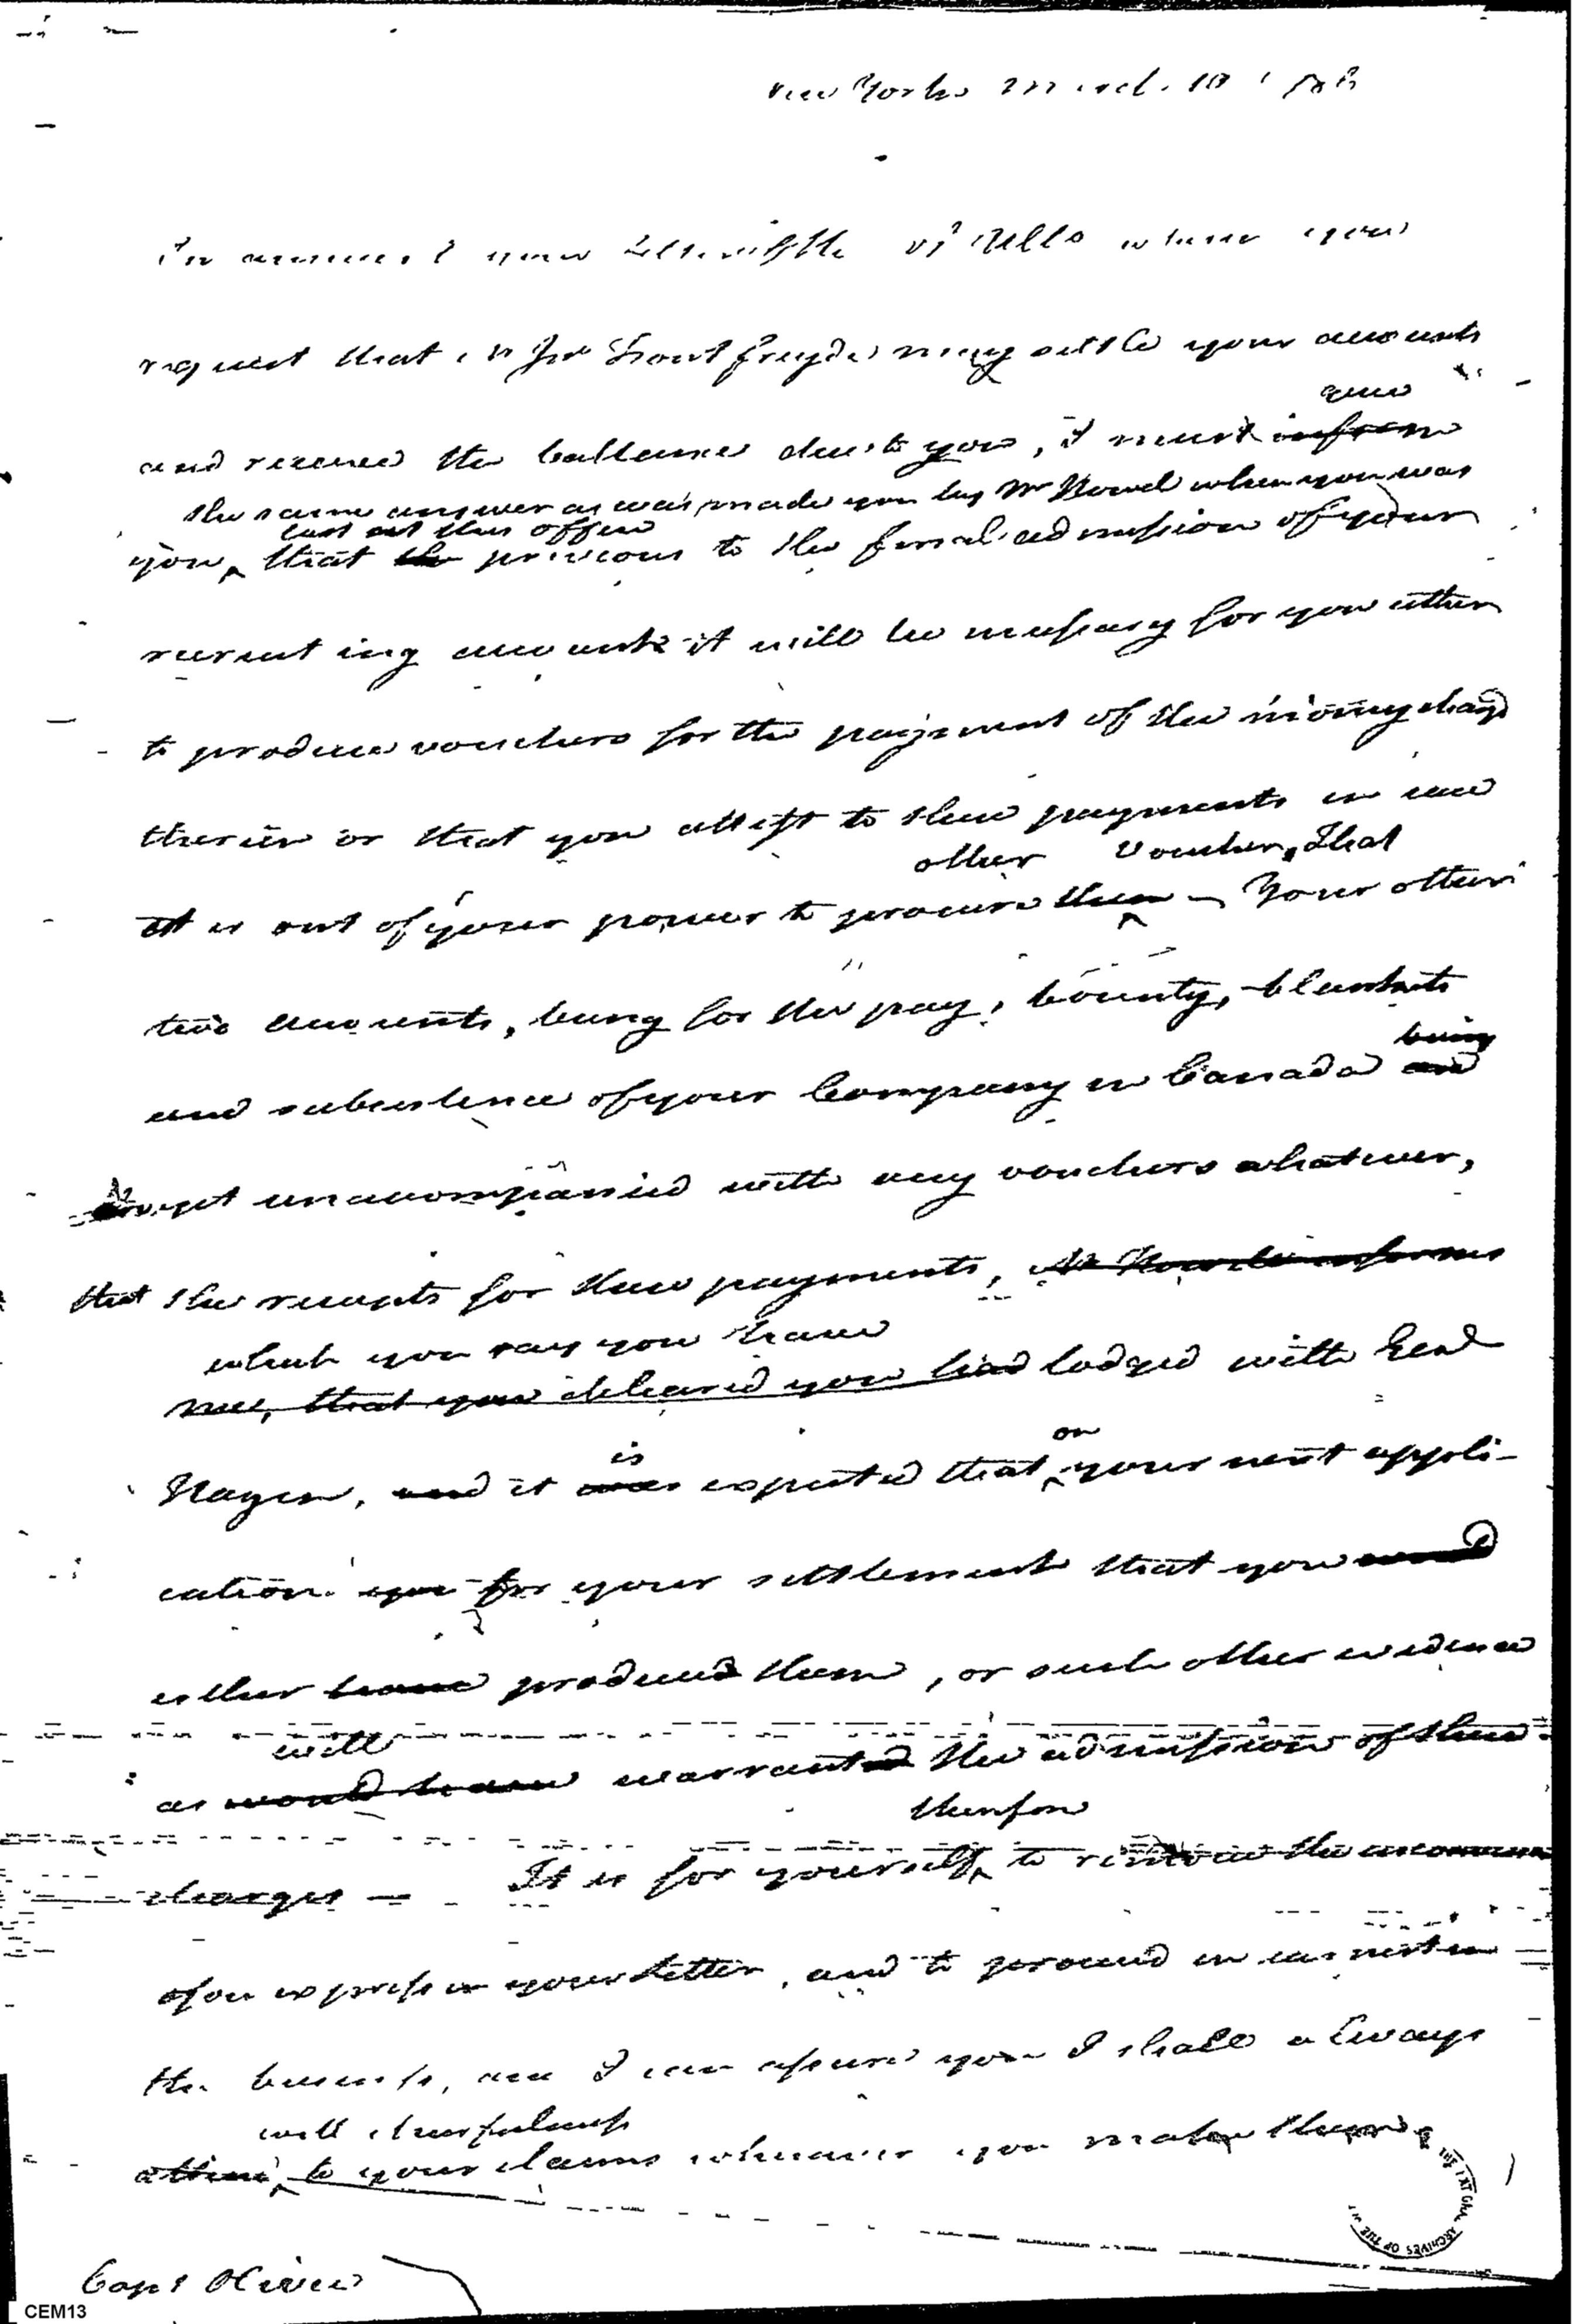 New York March 10 178
In answer your of Ulto where you
request that Mr Jno may settle your accounts
and receive the ballance due to you, I must inform
give
the same answer as was made you by Mr Howel when you was
last at this office
you, that the previous to the final admission of your
recruiting accounts it will be necessary for you either
to produce vouchers for the payment of the money chargd
therein or that you attest to these payments in case
other Voucher, That
it is out of your power to procure them – Your other
two accounts, being for the pay, bounty, blankets
being
and subsistence of your Company in Canada and
yet unaccompanied with any vouchers whatever,
that the receipts for these payments, Mr Howell informs
which you say you have
me, that you declared you had lodged with Genl
is
on
Hazen, and it was expected that your next appli-
cation you for your settlement that you would
either have produced them, or such other evidence
will
as would have warranted the admission of these
therefore
charges — It is for yourself to remove the
of express in your letter, and to proceed in earnest in
the business, and I can assure you I shall always
with chearfulness
attend to your claims whenever you make them
Capt Olivie
ARCHIVES OF THE
CEM13